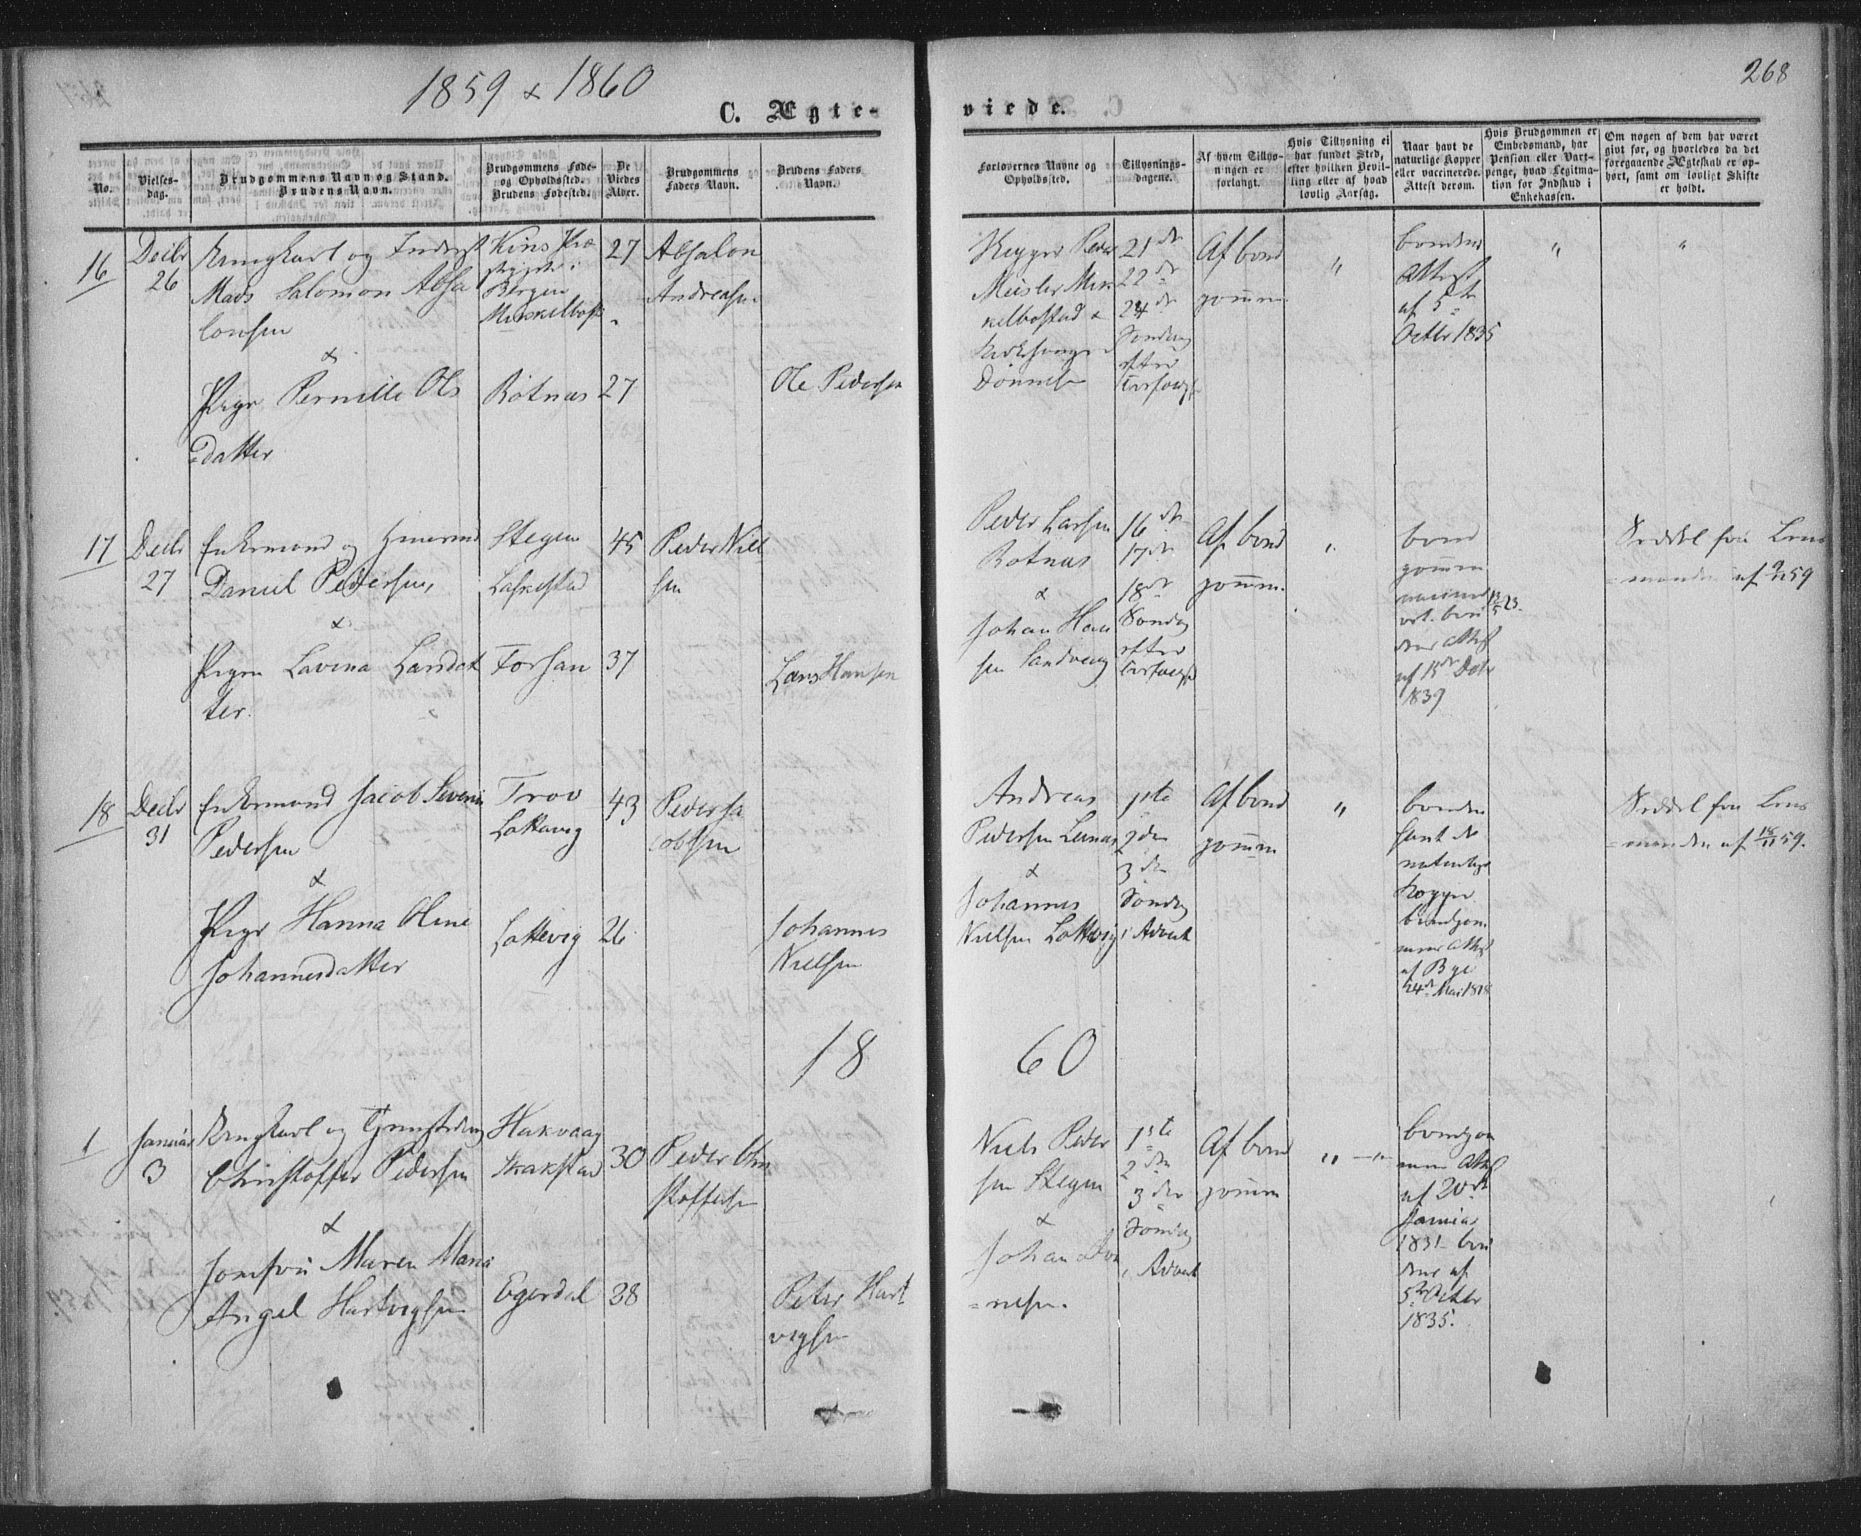 1859 & 1860
268
C. Ægte-
viede.
No.
Vielses-
dag.
Brudgommens Navn og Stand.
Brudens Navn.
Brudgommens Føde-
og Opholdssted.
Brudens Fødested.
De
Viedes
Alder.
Brudgommens
Faders Navn.
Brudens Faders
Navn.
Forlovernes Navne og
Opholdssted.
Tillysnings-
dagene.
Af hvem Tillys-
ningen er
forlangt.
Hvis Tillysning ei
har fundet Sted,
efter hvilken Bevil-
ling eller af hvad
lovlig Aarsag.
Naar havt de
naturlige Kopper
eller vaccinerede.
Attest derom.
Hvis Brudgommen er
Embedsmand, har
Pension eller Vart-
penge, hvad Legitima-
tion for Indskud i
Enkekassen.
Om nogen af dem har været
givt før, og hvorledes da det
foregaaende Ægteskab er op-
hørt, samt om lovligt Skifte
er holdt.
16
Decbr
26
Ungkarl og
Mads Salomon Absa
lonsen
&
Pige Pernille Ols
datter
Bergen
Rotnæs
27
27
Absalon
Andreasen
Ole Pedersen
&
Dønnesen
21de
22de
24de
Søndag
efter
Af Brud
gommen
"
af 5te
Octbr 1835
"
"
17
Decbr
27
Enkemand og
Daniel Pedersen,
&
Pigen Lavina Larsdat
ter.
Stegen
Laskestad
Forsan
45
37
Peder Niel
sen
Lars Hansen
Peder Larsen
Rotnæs
&
Johan Han
sen Sandvaag
16de
17de
18de
Søndag
efter
Af Brud
gommen.
"
Brud
gommen
1839
Seddel fra Lens
manden af 9/11 59
18
Decbr
31
Enkemand Jacob Severin
Pedersen
&
Pige Hanna Oline
Johannesdatter
Lottavig
Lottevig
43
26
Peder Ja
cobsen
Johannes
Nielsen
Andreas
Pedersen Leinæs
&
Johannes
Nielsen Lottevig
1ste
2den
3den
Søndag
i Advent
Af Brud
gommen
"
Bruden
havt de
naturlige
Kopper
Brudgom
mens Attest
24de Mai 1818
Seddel fra Lens
manden af 18/11 59.
18 60
1
Januar
3
Ungkarl og
Christoffer Pedersen
&
Jomfru Maren Maria
Angel Hartvigsen
Hakvaag
Skakstad
Egerdal
30
38
Peder Chri
stoffersen
Peter Hart
vigsen
Niels Peder
sen Stegen
&
Johan
1ste
2den
3die
Søndag
i Advent
Af Brud
gommen
" — "
Brudgom
mens Attest
af 20de
Januar
1831 Bru
dens af
5te Octbr
1835.